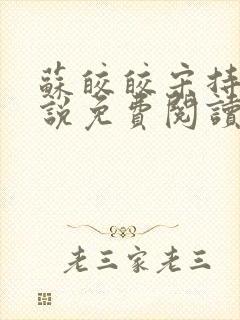 蘇皎皎宋持
說免費閱讀
老三家老三